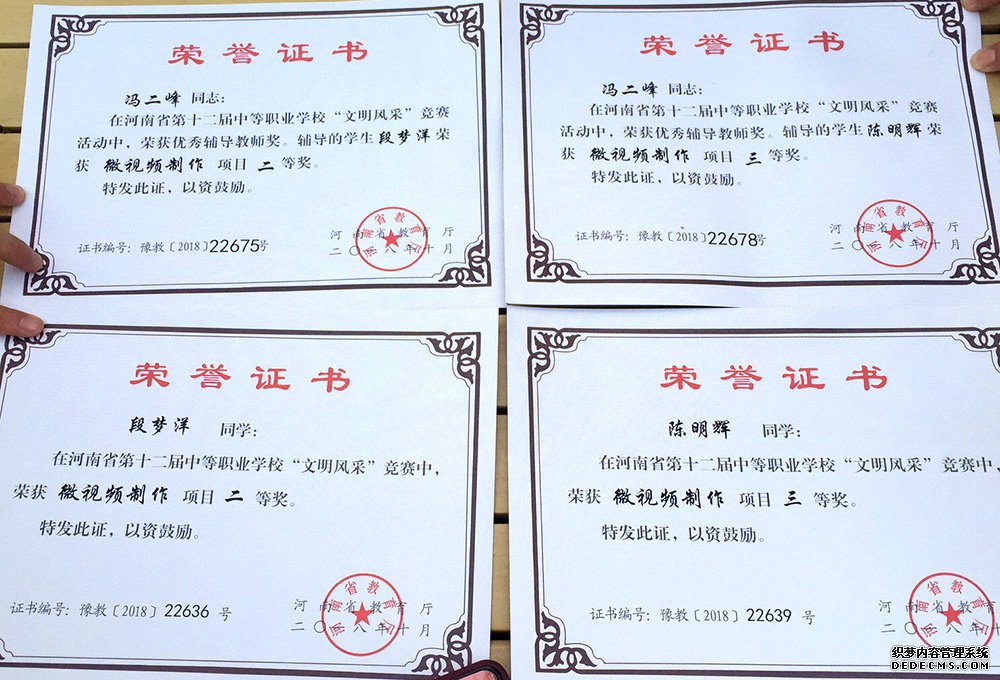 荣誉证书
冯二峰 同志：
在河南省第十二届中等职业学校“文明风采”竞赛
活动中，荣获优秀辅导教师奖。辅导的学生段梦洋荣
获 微视频制作 项目 二 等奖。
特发此证，以资鼓励。
河南省教育厅
证书编号：豫教〔2018〕22675号
二〇一八年十月
河南省教育厅
荣誉证书
冯二峰 同志：
在河南省第十二届中等职业学校“文明风采”竞赛
活动中，荣获优秀辅导教师奖。辅导的学生陈明辉荣
获 微视频制作 项目 三 等奖。
特发此证，以资鼓励。
河南省教育厅
证书编号：豫教〔2018〕22678号
二〇一八年十月
河南省教育厅
荣誉证书
段梦洋 同学：
在河南省第十二届中等职业学校“文明风采”竞赛中，
荣获 微视频制作 项目 二 等奖。
特发此证，以资鼓励。
证书编号：豫教〔2018〕22636 号
河南省教育厅
二〇一八年十月
河南省教育厅
荣誉证书
陈明辉 同学：
在河南省第十二届中等职业学校“文明风采”竞赛中，
荣获 微视频制作 项目 三 等奖。
特发此证，以资鼓励。
证书编号：豫教〔2018〕22639 号
河南省教育厅
二〇一八年十月
河南省教育厅
织梦内容管理系统
DEDECMS.COM